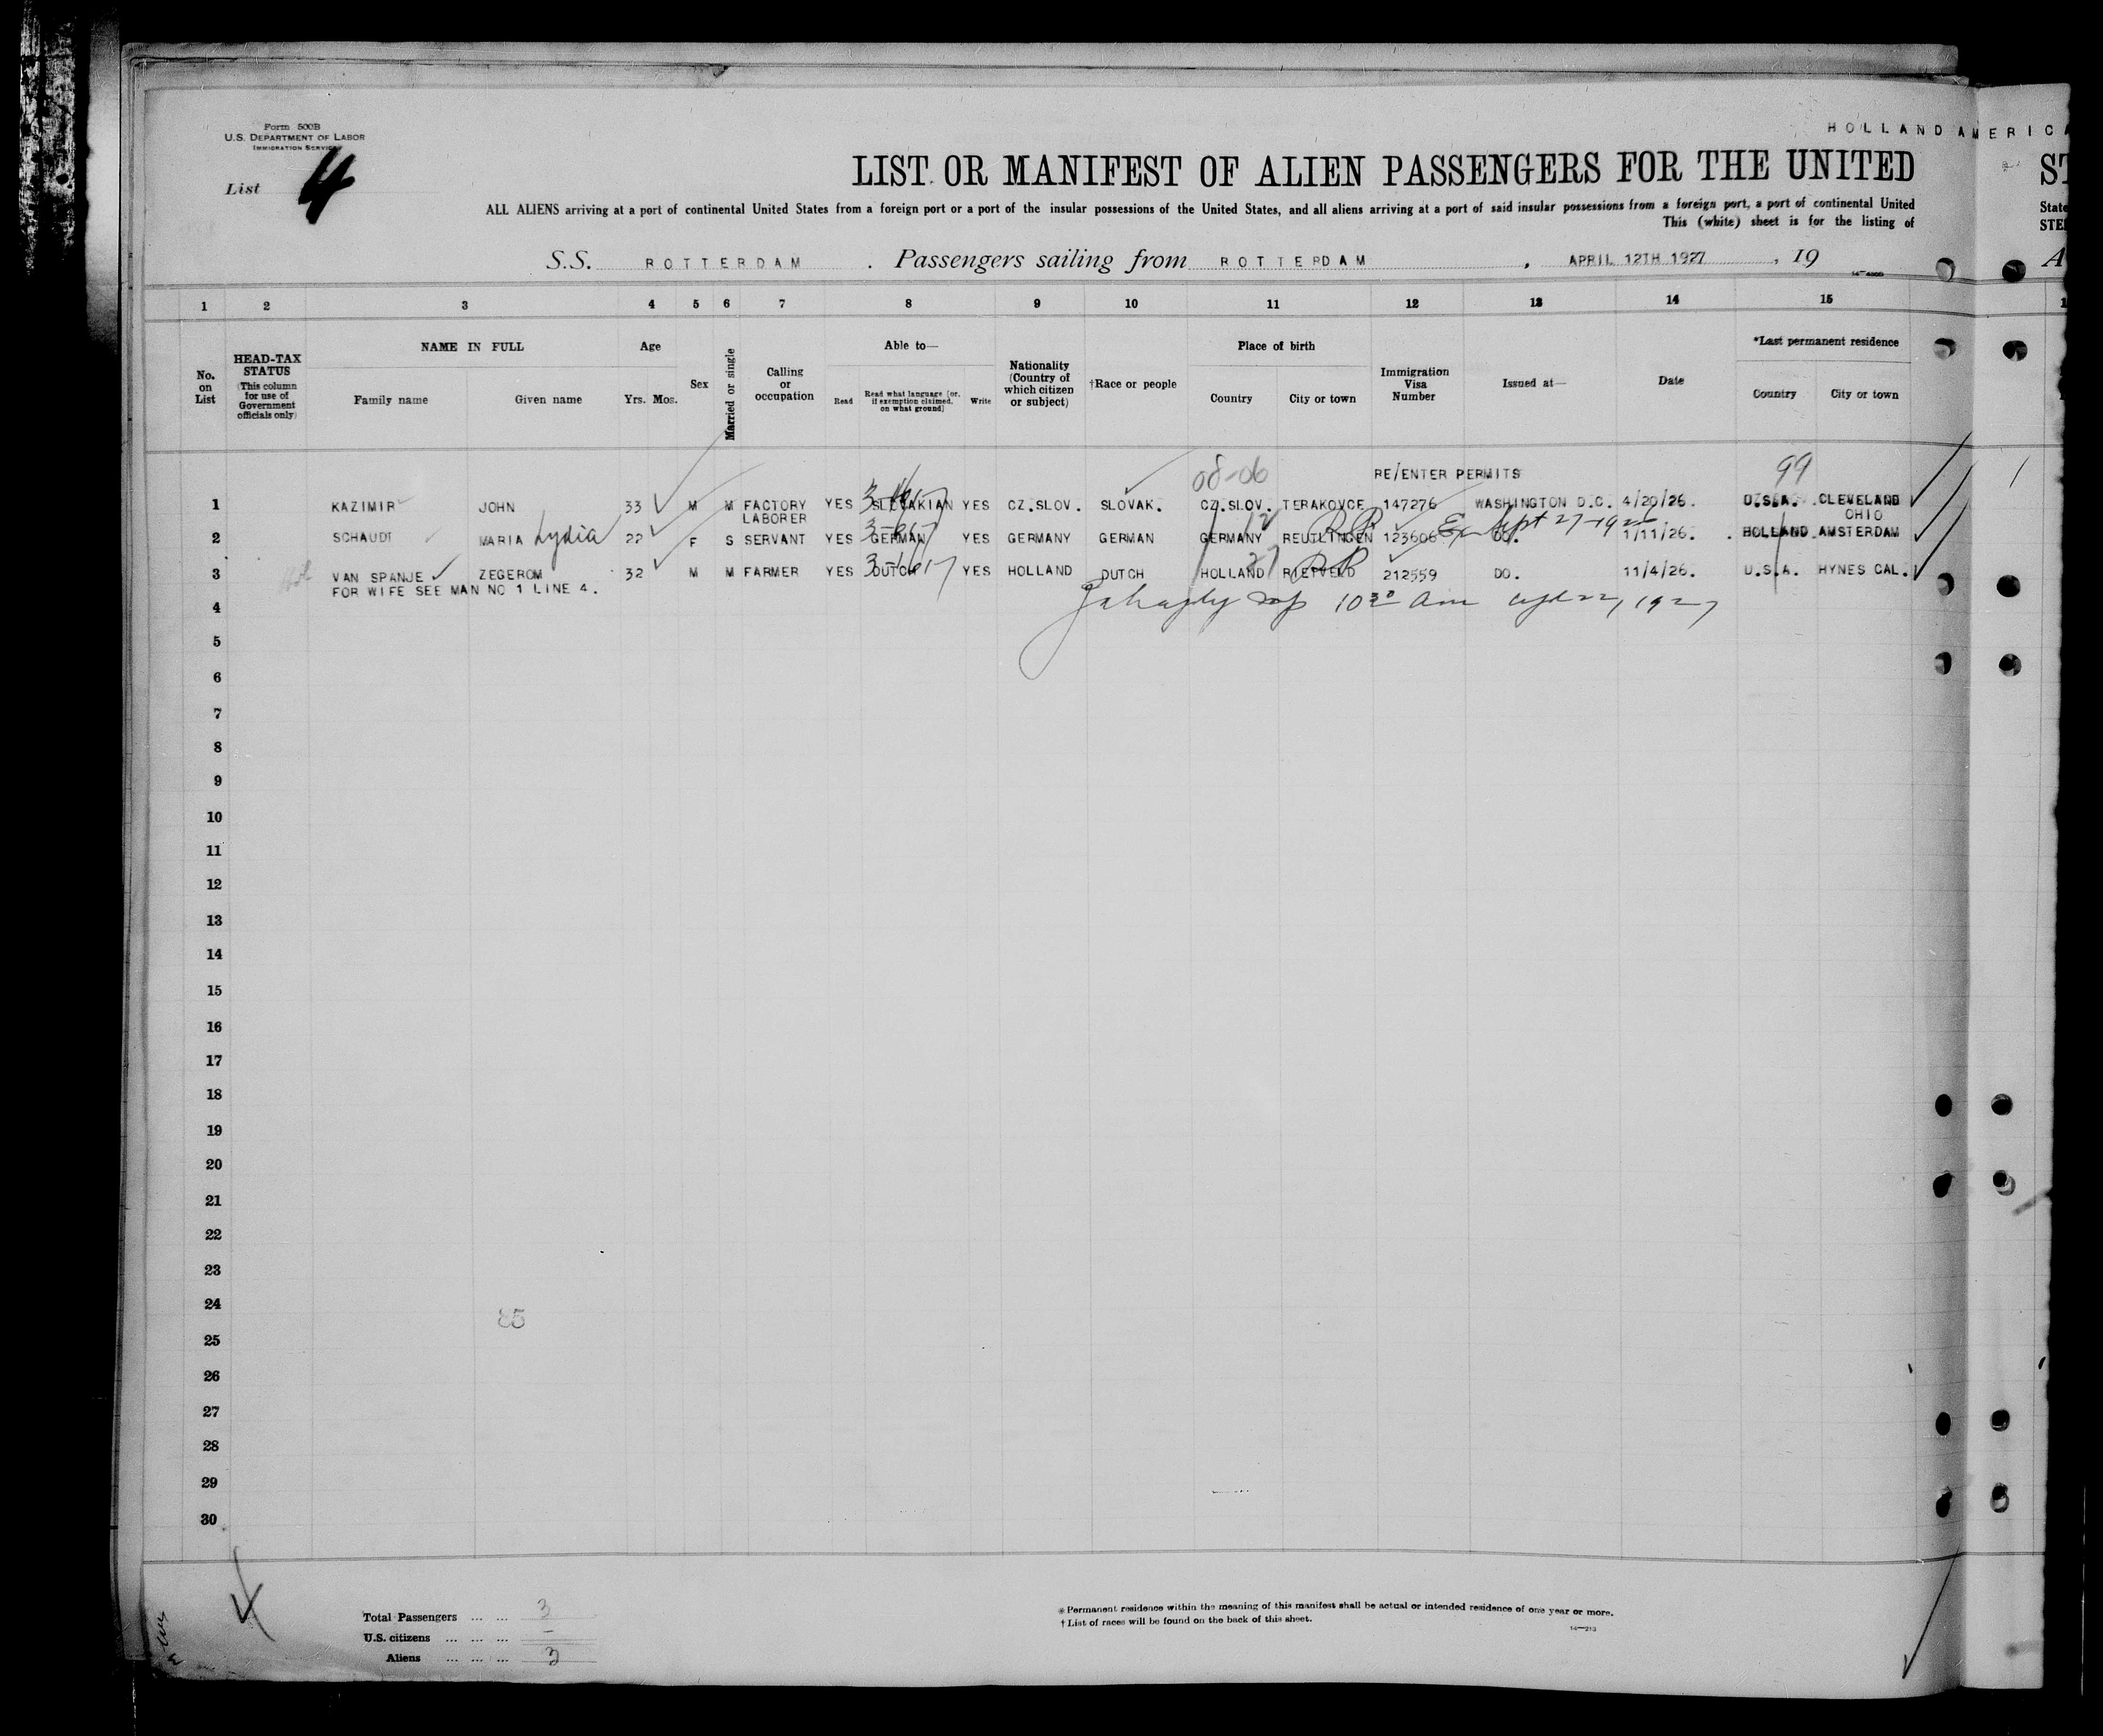 HOLLAND AMERICA
Form 500B
U.S. DEPARTMENT OF LABOR
IMMIGRATION SERVICE
List 4
LIST OR MANIFEST OF ALIEN PASSENGERS FOR THE UNITED ST
ALL ALIENS arriving at a port of continental United States from a foreign port or a port of the insular possessions of the United States, and all aliens arriving at a port of said insular possessions from a foreign port, a port of continental United State
This (white) sheet is for the listing of STE
S.S. ROTTERDAM . Passengers sailing from ROTTERDAM , APRIL 12TH 1927 , 19 A
1 2 3 4 5 6 7 8 9 10 11 12 13 14 15
No. on List
HEAD-TAX STATUS (This column for use of Government officials only)
NAME IN FULL
Family name Given name
Age
Yrs. Mos.
Sex
Married or single
Calling or occupation
Able to—
Read Read what language [or, if exemption claimed, on what ground] Write
Nationality (Country of which citizen or subject)
†Race or people
Place of birth
Country City or town
Immigration Visa Number
Issued at—
Date
*Last permanent residence
Country City or town
08-06 RE/ENTER PERMITS 99
1 KAZIMIR JOHN 33 M M FACTORY YES SLOVAKIAN YES CZ.SLOV. SLOVAK. CZ.SLOV. TERAKOVCE 147276 WASHINGTON D.C. 4/20/26. U.S.A. CLEVELAND
LABORER OHIO
2 SCHAUDT MARIA Lydia 22 F S SERVANT YES GERMAN YES GERMANY GERMAN GERMANY REUTLINGEN 123606 DO. 1/11/26. HOLLAND AMSTERDAM
3 VAN SPANJE ZEGEROM 32 M M FARMER YES DUTCH YES HOLLAND DUTCH HOLLAND RIETVELD 212559 DO. 11/4/26. U.S.A. HYNES CAL.
FOR WIFE SEE MAN NO 1 LINE 4.
4
5
6
7
8
9
10
11
12
13
14
15
16
17
18
19
20
21
22
23
24
25
26
27
28
29
30
85
Total Passengers ... ... 3
U.S. citizens ... ... ... –
Aliens ... ... ... 3
* Permanent residence within the meaning of this manifest shall be actual or intended residence of one year or more.
† List of races will be found on the back of this sheet.
14—213